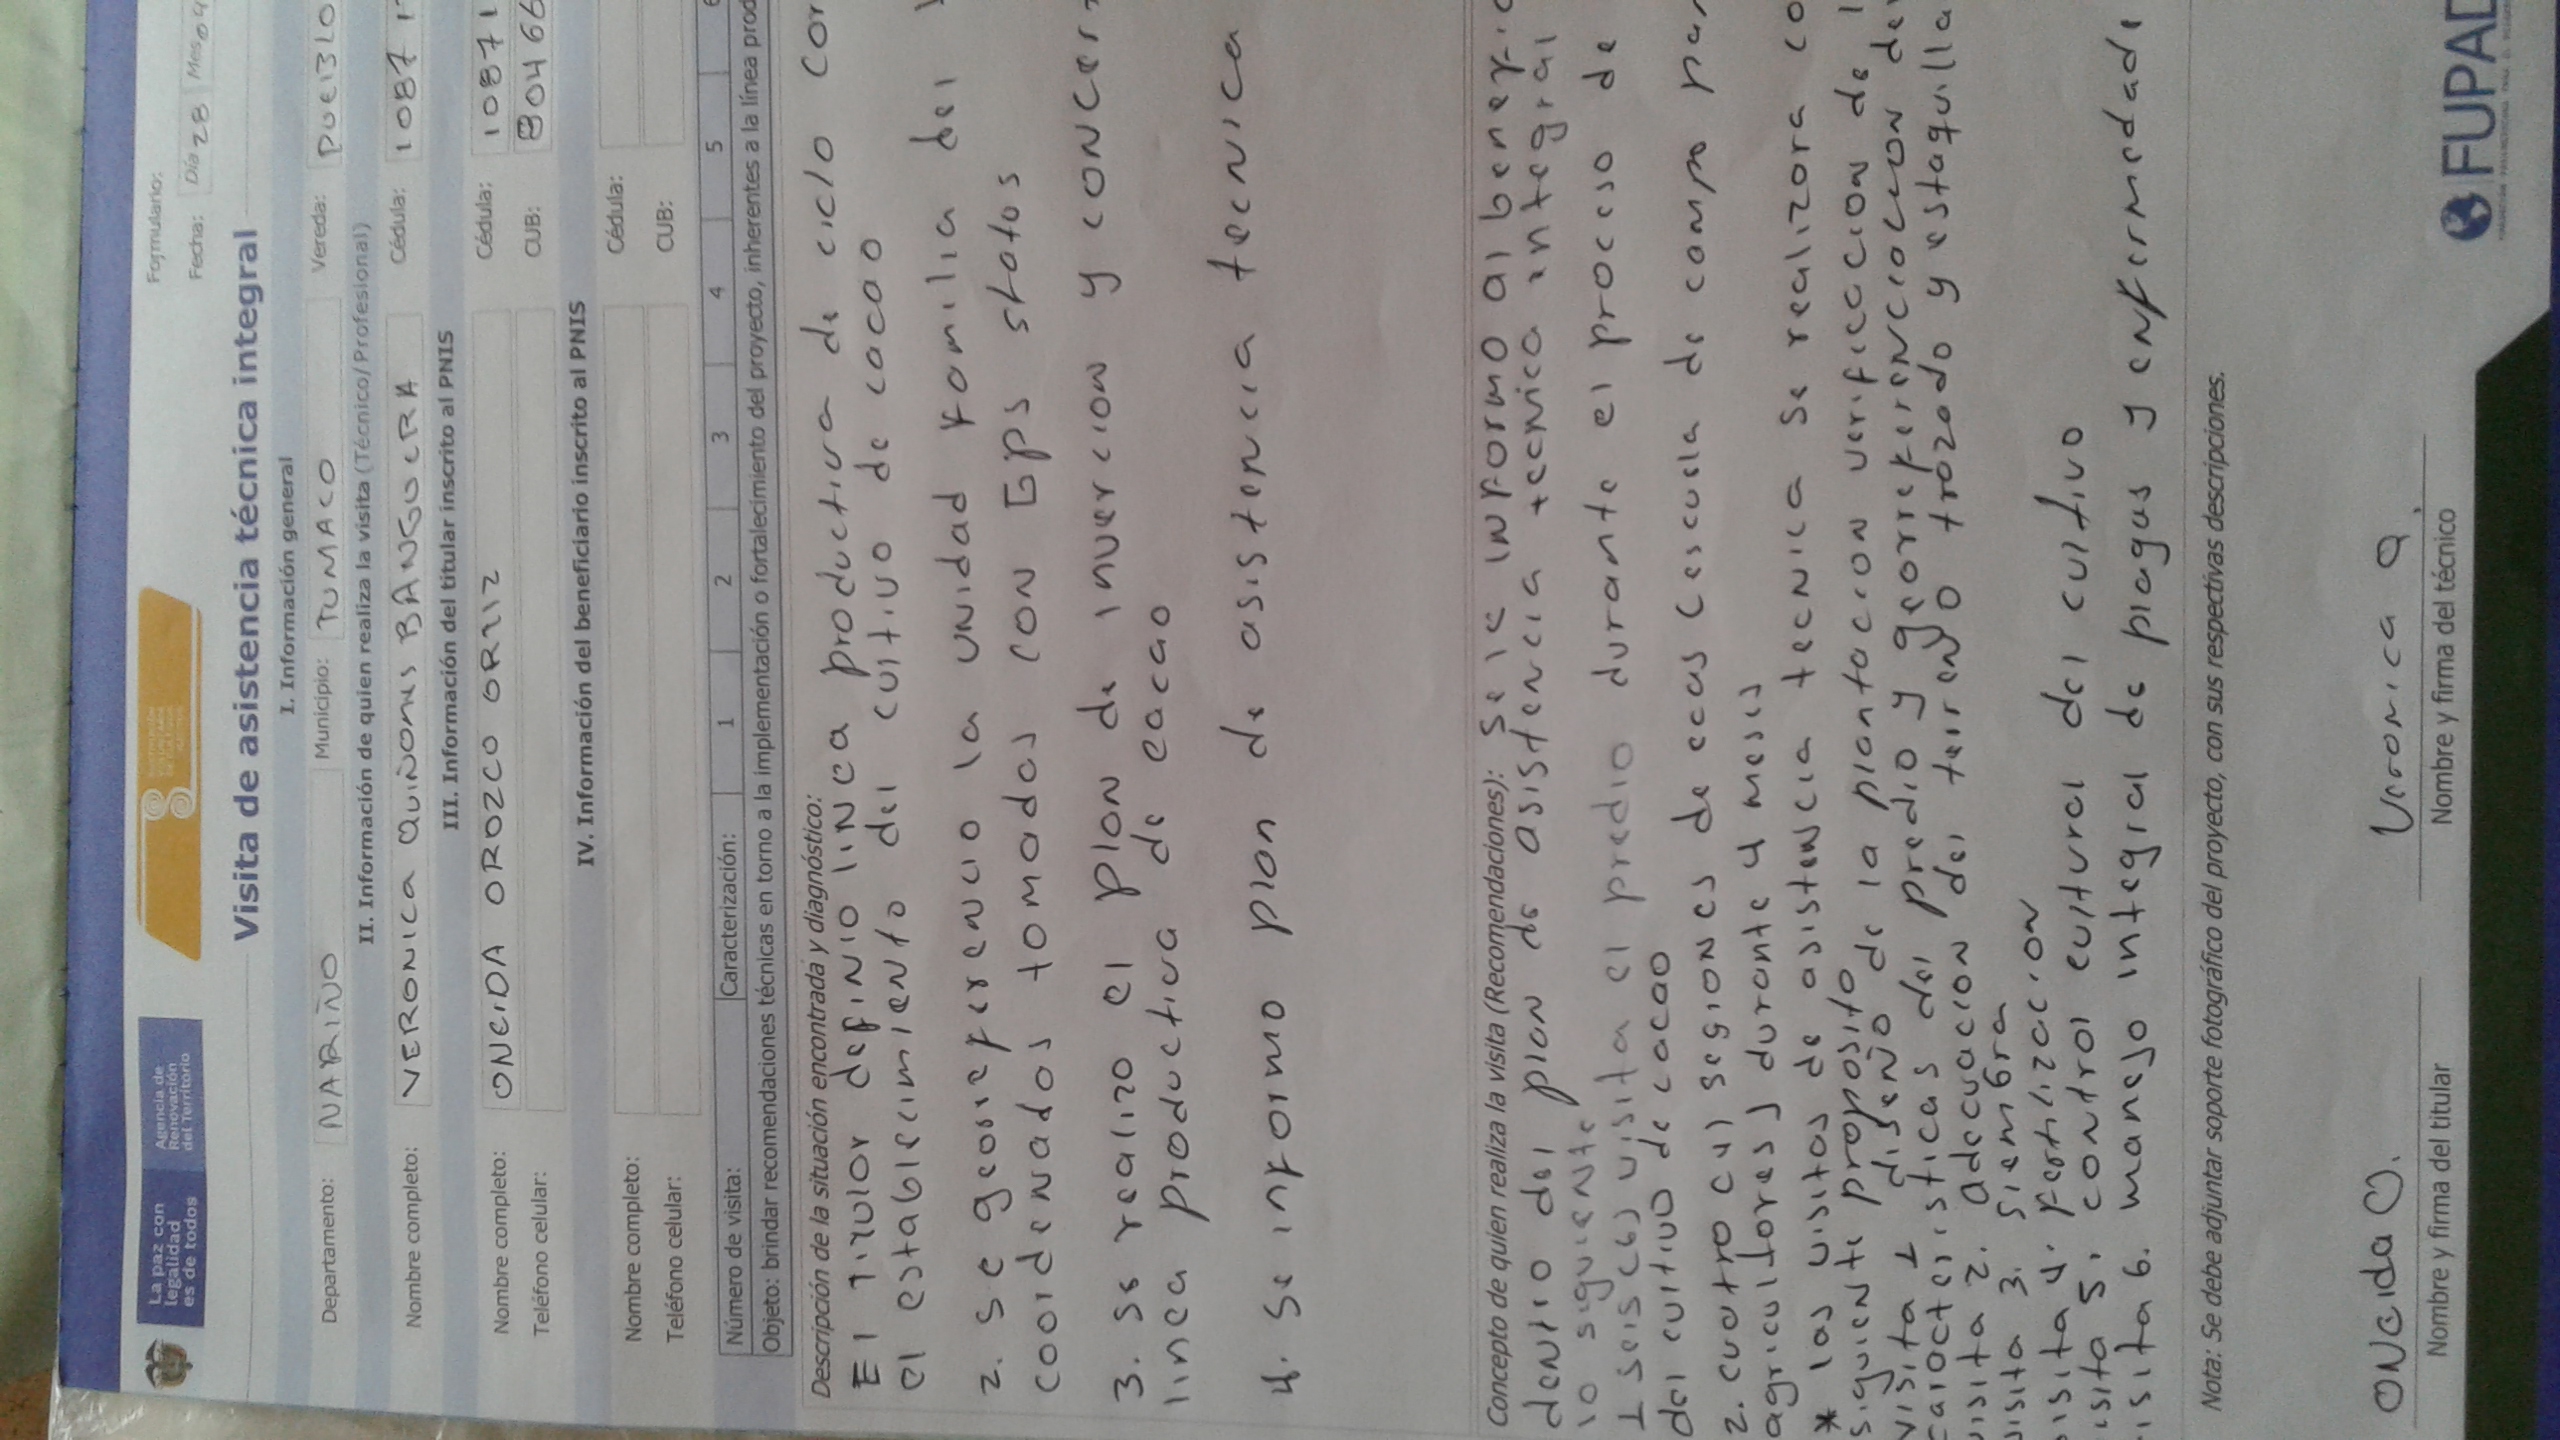 La paz con
legalidad
es de todos
Agencia de
Renovación
del Territorio
Formulario:
Fecha: Día 28 Mes 09
Visita de asistencia técnica integral
I. Información general
Departamento: NARIÑO Municipio: TUMACO Vereda: PUEBLO
II. Información de quien realiza la visita (Técnico/Profesional)
Nombre completo: VERONICA QUIÑONES BANGUERA Cédula: 10871
III. Información del titular inscrito al PNIS
Nombre completo: ONEIDA OROZCO ORTIZ Cédula: 10871
Teléfono celular: CUB: 80466
IV. Información del beneficiario inscrito al PNIS
Nombre completo: Cédula:
Teléfono celular: CUB:
Número de visita: Caracterización: 1 2 3 4 5 6
Objeto: brindar recomendaciones técnicas en torno a la implementación o fortalecimiento del proyecto, inherentes a la línea prod
Descripción de la situación encontrada y diagnóstico:
El titulor definio linea productiva de ciclo cor
el establecimiento del cultivo de cacao
2. se georreferencio la unidad familia del
coordenadas tomadas con Gps statos
3. se realizo el plan de invercion y concer
linea productiva de cacao
4. Se informo plan de asistencia tecnica
Concepto de quien realiza la visita (Recomendaciones): Se le informo al benefic
dentro del plan de asistencia tecnica integral
lo siguiente
1 seis (6) visita el predio durante el proceso de
del cultivo de cacao
2. cuatro (4) segiones de ecas (escuela de campo par
agricultores) durante 4 meses
* las visitas de asistencia tecnica se realizara co
siguiente proposito
visita 1 diseño de la plantacion verificacion de l
caracteristicas del predio y georreferenciacion de
visita 2. adecuacion del terreno trazado y estaquilla
visita 3. siembra
visita 4. fertilizacion
isita 5. control cultural del cultivo
isita 6. manejo integral de plagas y enfermedade
Nota: Se debe adjuntar soporte fotográfico del proyecto, con sus respectivas descripciones.
ONeida O. Veronica Q.
Nombre y firma del titular Nombre y firma del técnico
FUPAD